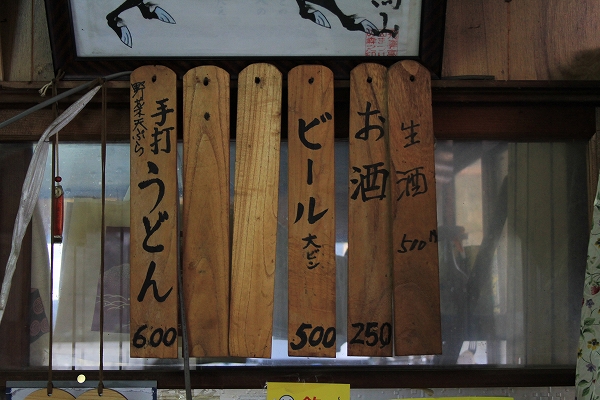 野菜天ぷら
手打うどん
600
ビール
大ビン
500
お酒
250
生酒
510円